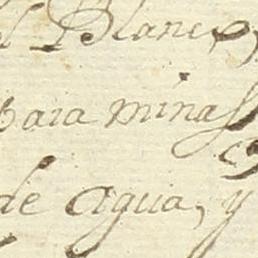 el Blanco,
para minas
de agua, y